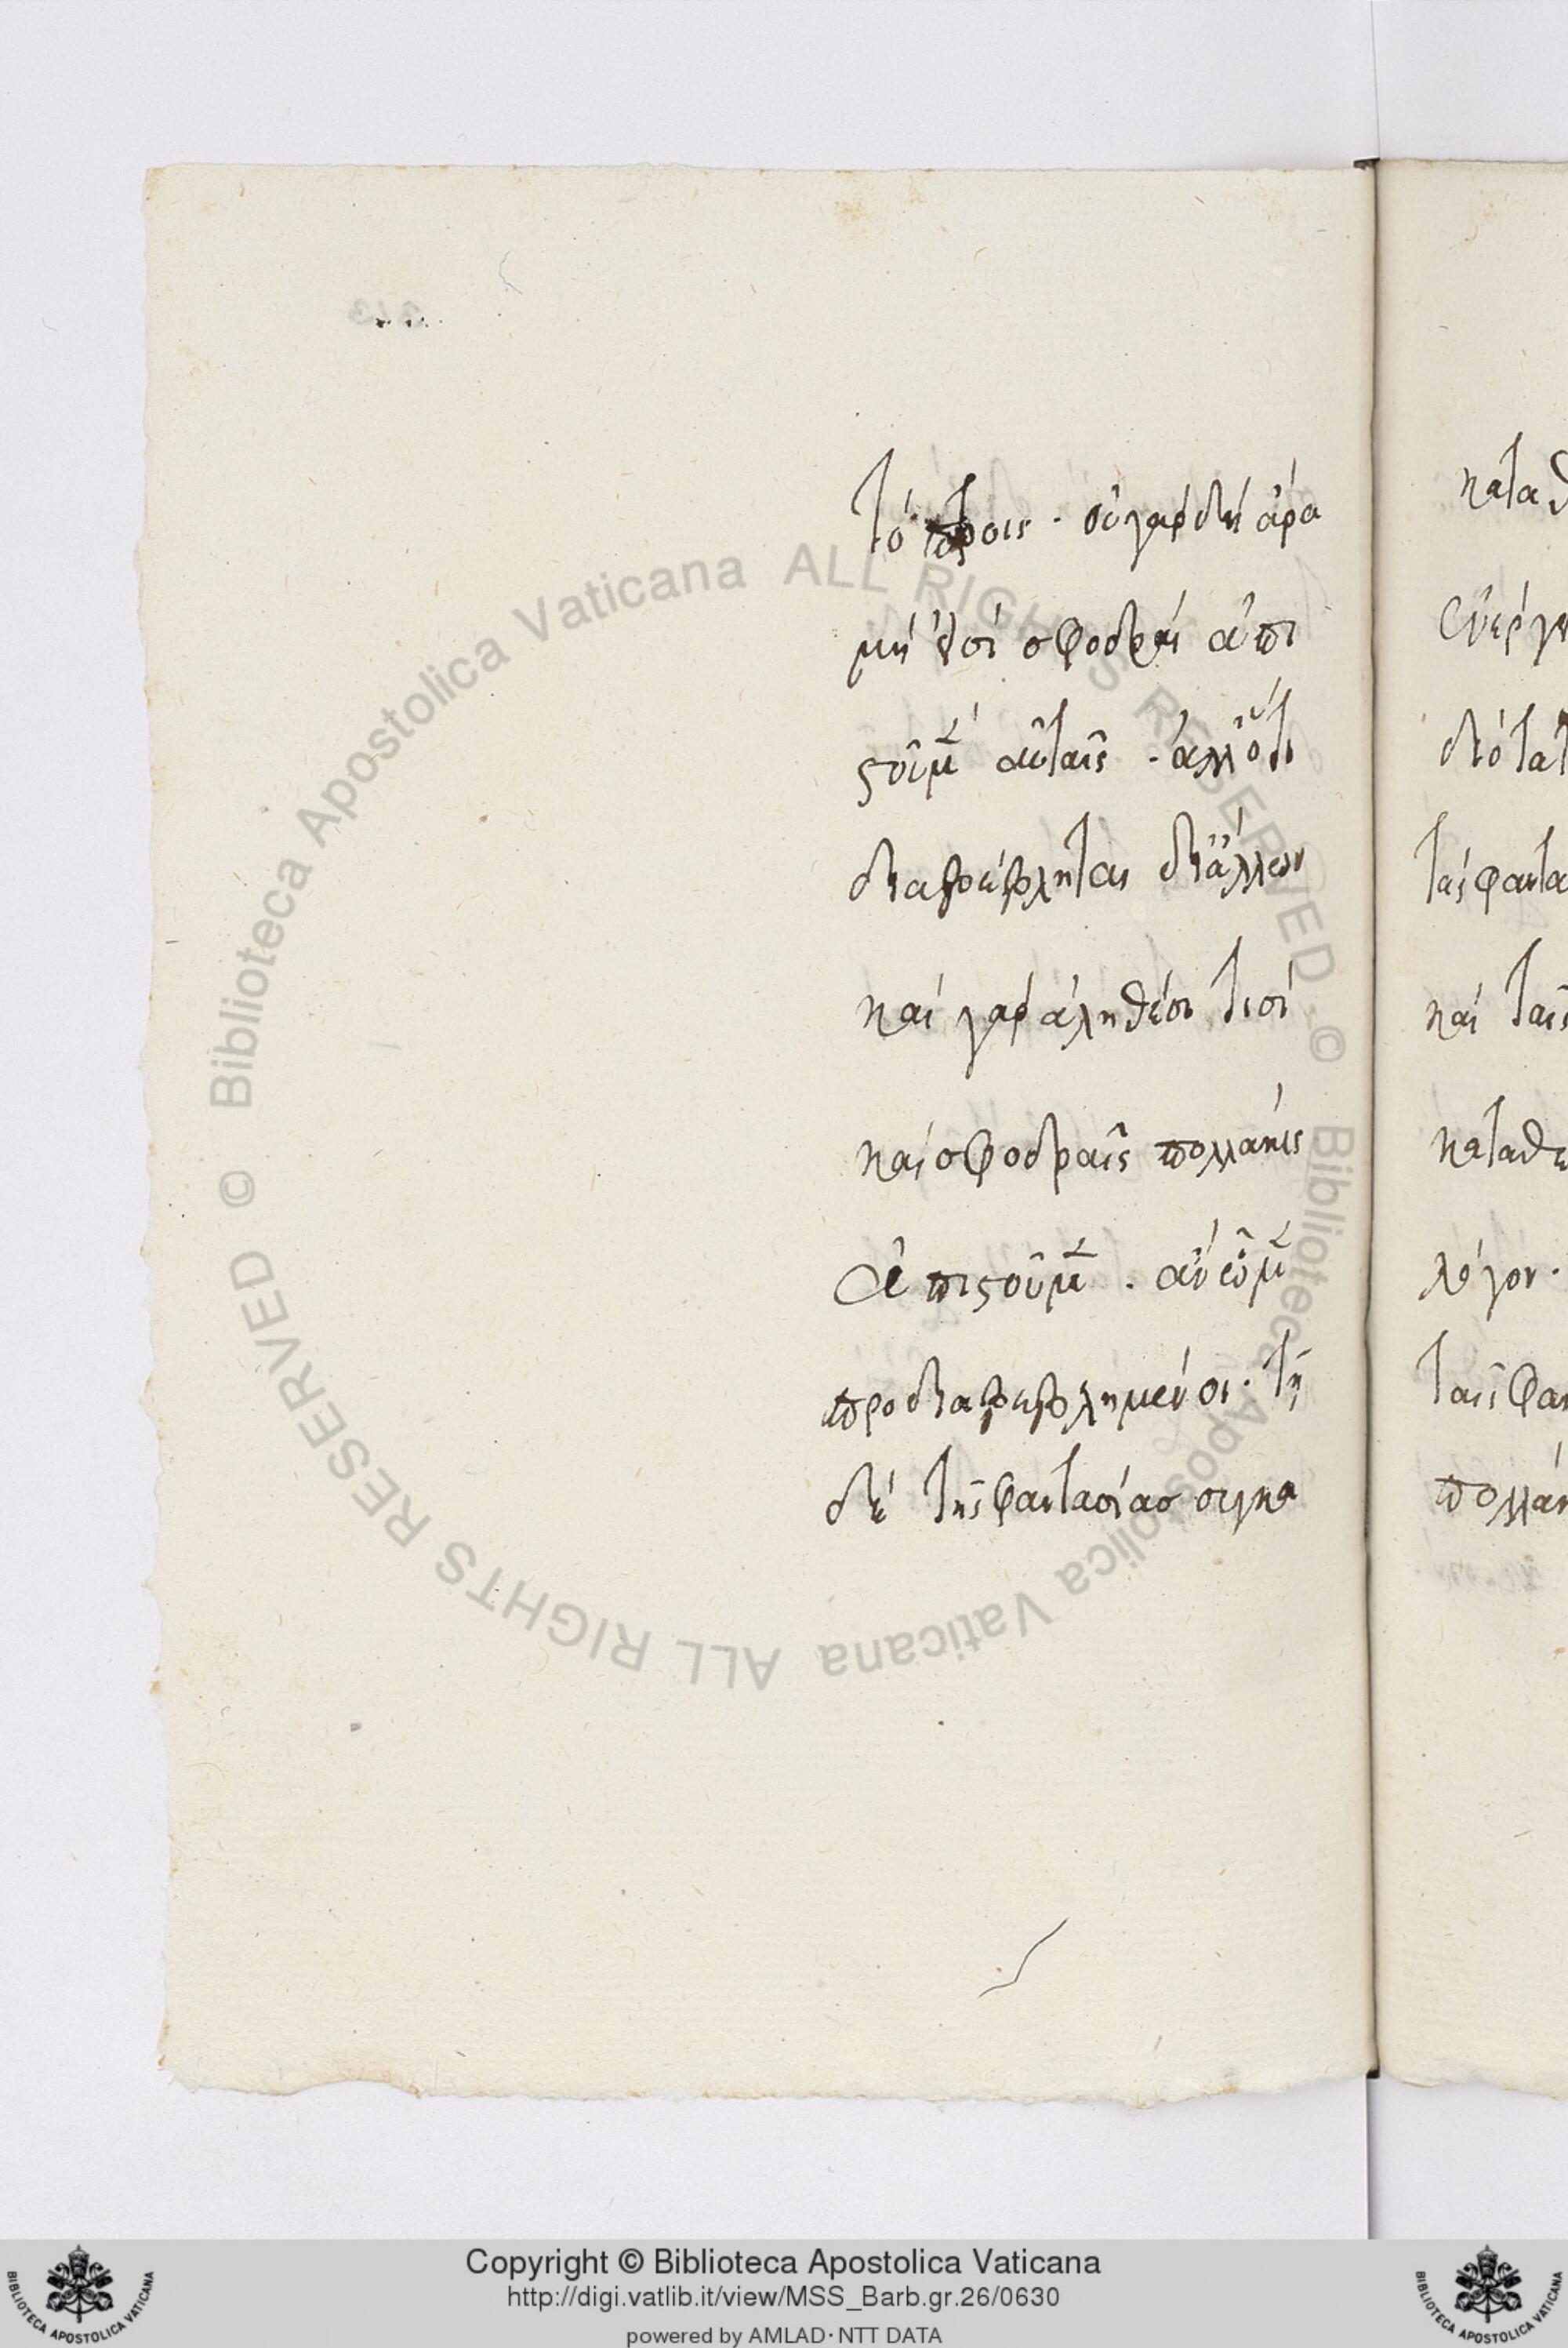 τότοις · οὐ γὰρ δὴ ἄρα
μὴ ὦσι σφοδραὶ ἀπι
στοῦμ αὐταῖς · ἀλλ' ὅτι
διαβέβληται δι' ἄλλων
καὶ γὰρ ἀληθέσι τισὶ
καὶ σφοδραῖς πολλάκις
ἀπιστοῦμ · ἂν ὦμ
προδιαβεβλημένοι · τῇ
δὲ τῆς φαντασίας συγκα
καταθ
ἐνεργ
διὸ τατ
ταὶ φαντα
καὶ ταῖς
καταθε
λόγον ·
ταῖς φαν
πολλάκ
Biblioteca Apostolica Vaticana ALL RIGHTS RESERVED © Biblioteca Apostolica Vaticana ALL RIGHTS RESERVED ©
Copyright © Biblioteca Apostolica Vaticana
http://digi.vatlib.it/view/MSS_Barb.gr.26/0630
powered by AMLAD·NTT DATA
BIBLIOTECA APOSTOLICA VATICANA
BIBLIOTECA APOSTOLICA VATICANA